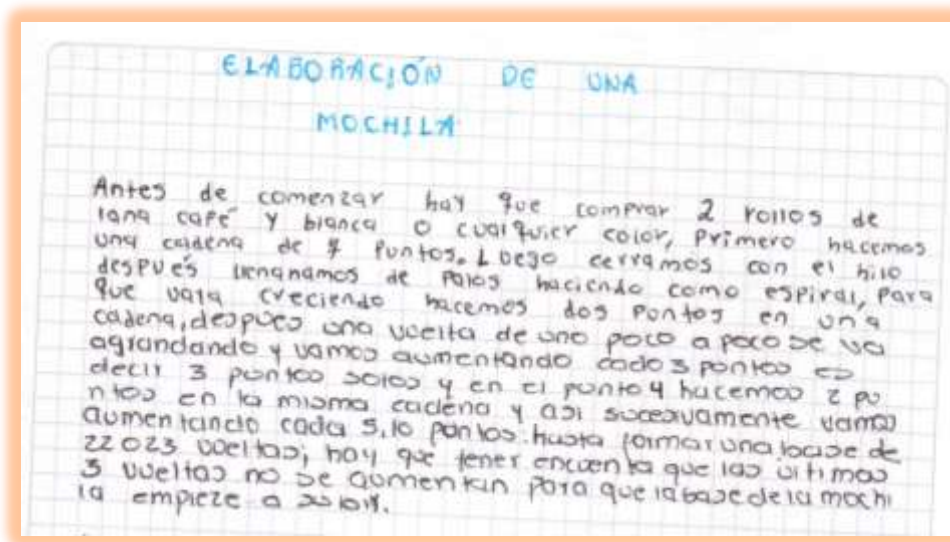 ELABORACIÓN DE UNA
MOCHILA
Antes de comenzar hay que comprar 2 rollos de
lana café y blanca o cualquier color, Primero hacemos
una cadena de 7 Puntos. Luego cerramos con el hilo
después llenamos de Palos haciendo como espiral, Para
que vaia creciendo hacemos dos Pontos en una
cadena, despues una vuelta de uno poco a poco se va
agrandando y vamos aumentando cada 3 pontos es
decir 3 pontos solos y en el ponto 4 hacemos 2 po
ntos en la misma cadena y asi sucesivamente vamos
aumentando cada 5,10 pontos. hasta formar una base de
22 o 23 voeltas; hay que tener encuenta que las ultimas
3 voeltas no se aomentan para que la base de la mochi
la empieze a subir.